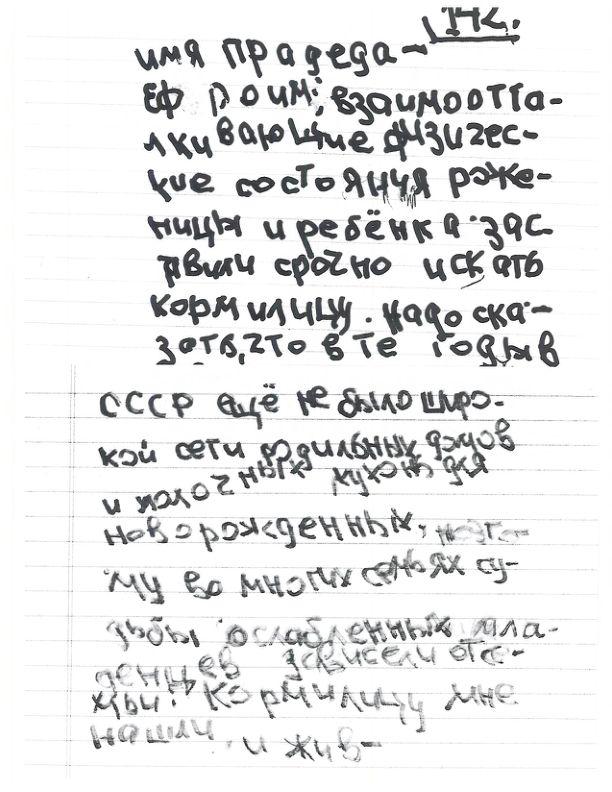 142.
имя прадеда –
Ефроим; взаимоотта-
лкивающие физичес-
кие состояния роже-
ницы и ребёнка зас-
твили срочно искать
кормилицу. Надо ска-
зать, что в те годы в
СССР ещё не было широ-
кой сети родильных домов
и молочных кухонь для
новорожденных, поэто-
му во многих семьях су-
дьбы ослабленных мла-
денцев зависели от се-
мьи. Кормилицу мне
нашли, и жив-